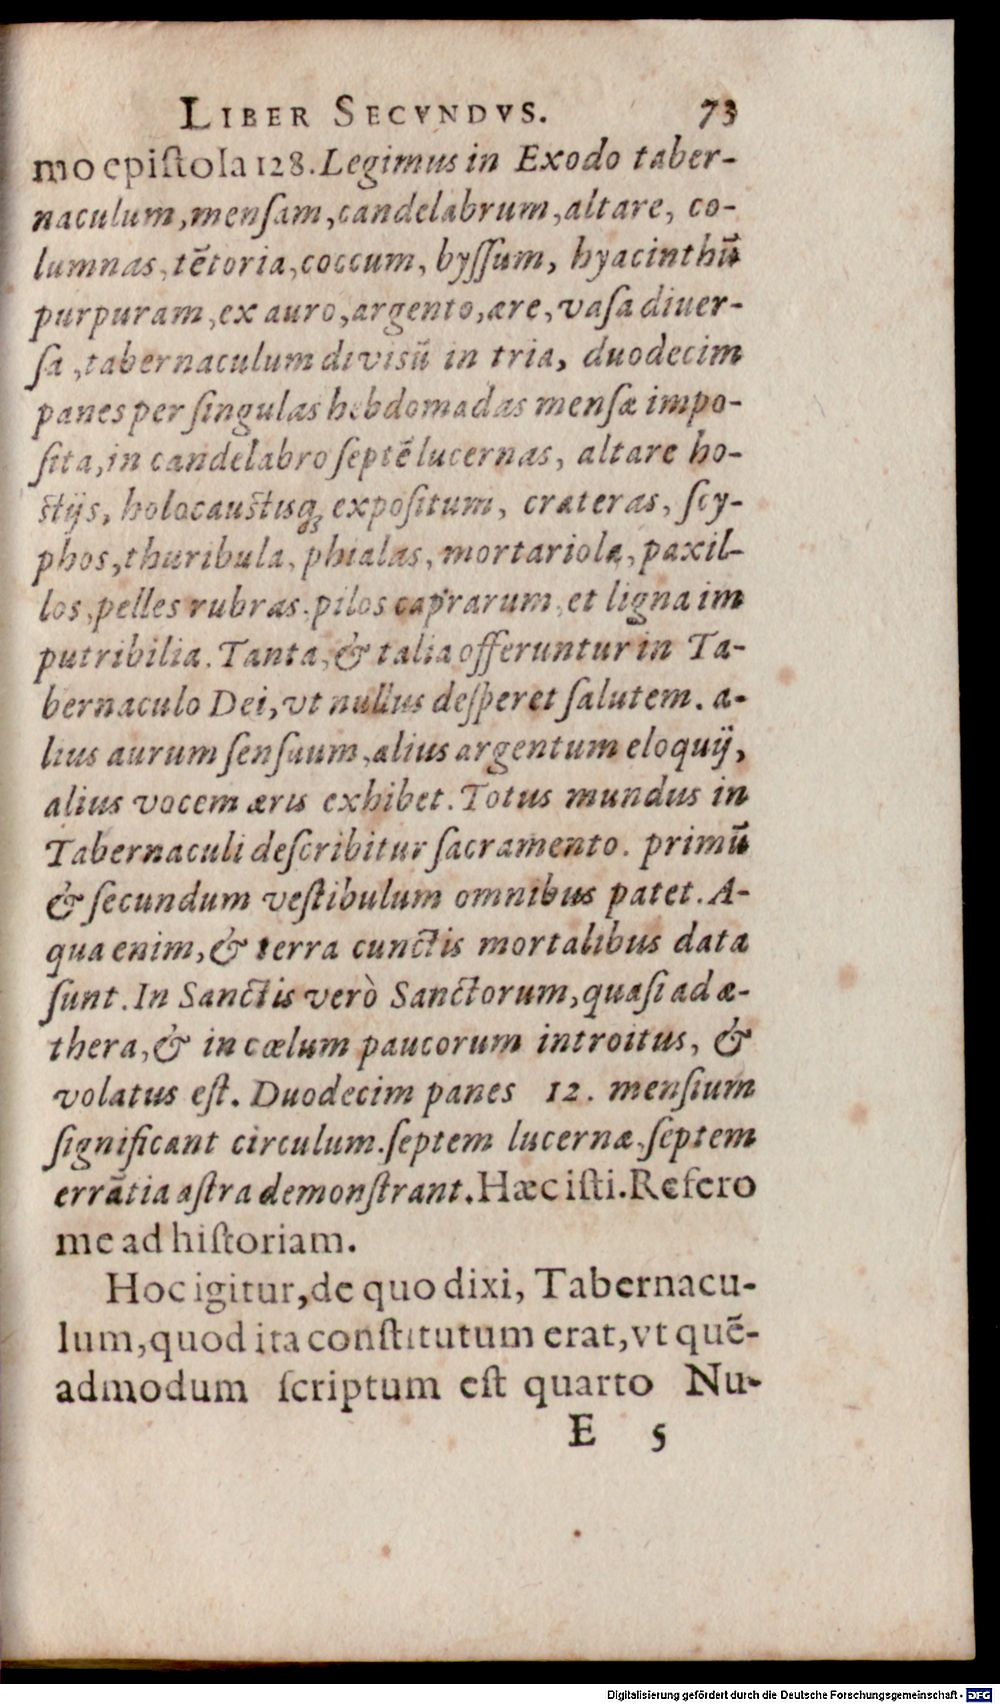 LIBER SECVNDVS. 73
mo epiſtola 128. Legimus in Exodo taber-
naculum, menſam, candelabrum, altare, co-
lumnas, tẽtoria, coccum, byſſum, hyacinthũ
purpuram, ex auro, argento, ære, vaſa diuer-
ſa, tabernaculum diviſũ in tria, duodecim
panes per ſingulas hebdomadas menſæ impo-
ſita, in candelabro ſeptẽ lucernas, altare ho-
ſtijs, holocauſtisq; expoſitum, crateras, ſcy-
phos, thuribula, phialas, mortariola, paxil-
los, pelles rubras. pilos caprarum, et ligna im
putribilia. Tanta, & talia offeruntur in Ta-
bernaculo Dei, vt nullus deſperet ſalutem. a-
lius aurum ſenſuum, alius argentum eloquij,
alius vocem æris exhibet. Totus mundus in
Tabernaculi deſcribitur ſacramento. primũ
& ſecundum veſtibulum omnibus patet. A-
qua enim, & terra cunctis mortalibus data
ſunt. In Sanctis verò Sanctorum, quaſi ad æ-
thera, & in cœlum paucorum introitus, &
volatus eſt. Duodecim panes 12. menſium
ſignificant circulum. ſeptem lucernæ, ſeptem
errãtia aſtra demonſtrant. Hæc iſti. Refero
me ad hiſtoriam.
Hoc igitur, de quo dixi, Tabernacu-
lum, quod ita conſtitutum erat, vt quẽ-
admodum ſcriptum eſt quarto Nu-
E 5
Digitalisierung gefördert durch die Deutsche Forschungsgemeinschaft - DFG